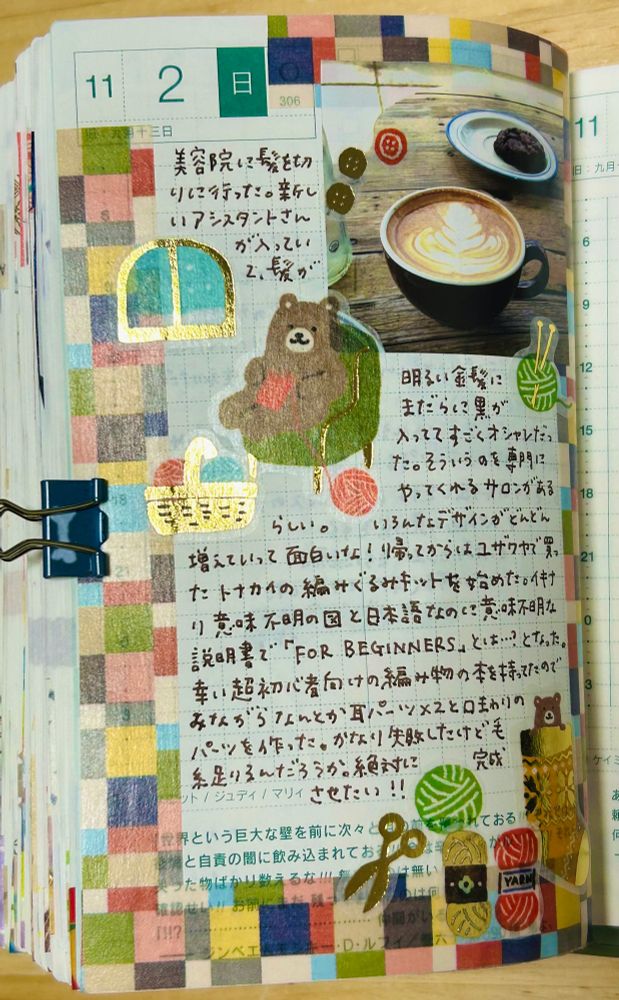 11 2 日
306
旧:九月十三日
美容院に髪を切
りに行った。新し
いアシスタントさん
が入ってい
て、髪が
明るい金髪に
まだらに黒が
入っててすごくオシャレだっ
た。そういうのを専門に
やってくれるサロンがある
らしい。 いろんなデザインがどんどん
増えていって面白いな!帰ってからはユザワヤで買っ
たトナカイの編みぐるみキットを始めた。イキナ
リ意味不明の図と日本語なのに意味不明な
説明書で「FOR BEGINNERS」とは…?となった。
幸い超初心者向けの編み物の本を持ってたので
みながらなんとか耳パーツ×2と口まわりの
パーツを作った。かなり失敗したけど毛
糸足りるんだろうか。絶対に 完成
させたい!!
ット / ジュディ / マリィ
世界という巨大な壁を前に次々と
と自責の闇に飲み込まれておる
った物ばかり数えるな!!!
確認せい!! お前に
仲間がい
ジンベエ
モンキー・D・ルフィ/
YARN
11
日:九月
6
9
12
15
18
21
0
3
ケイミ